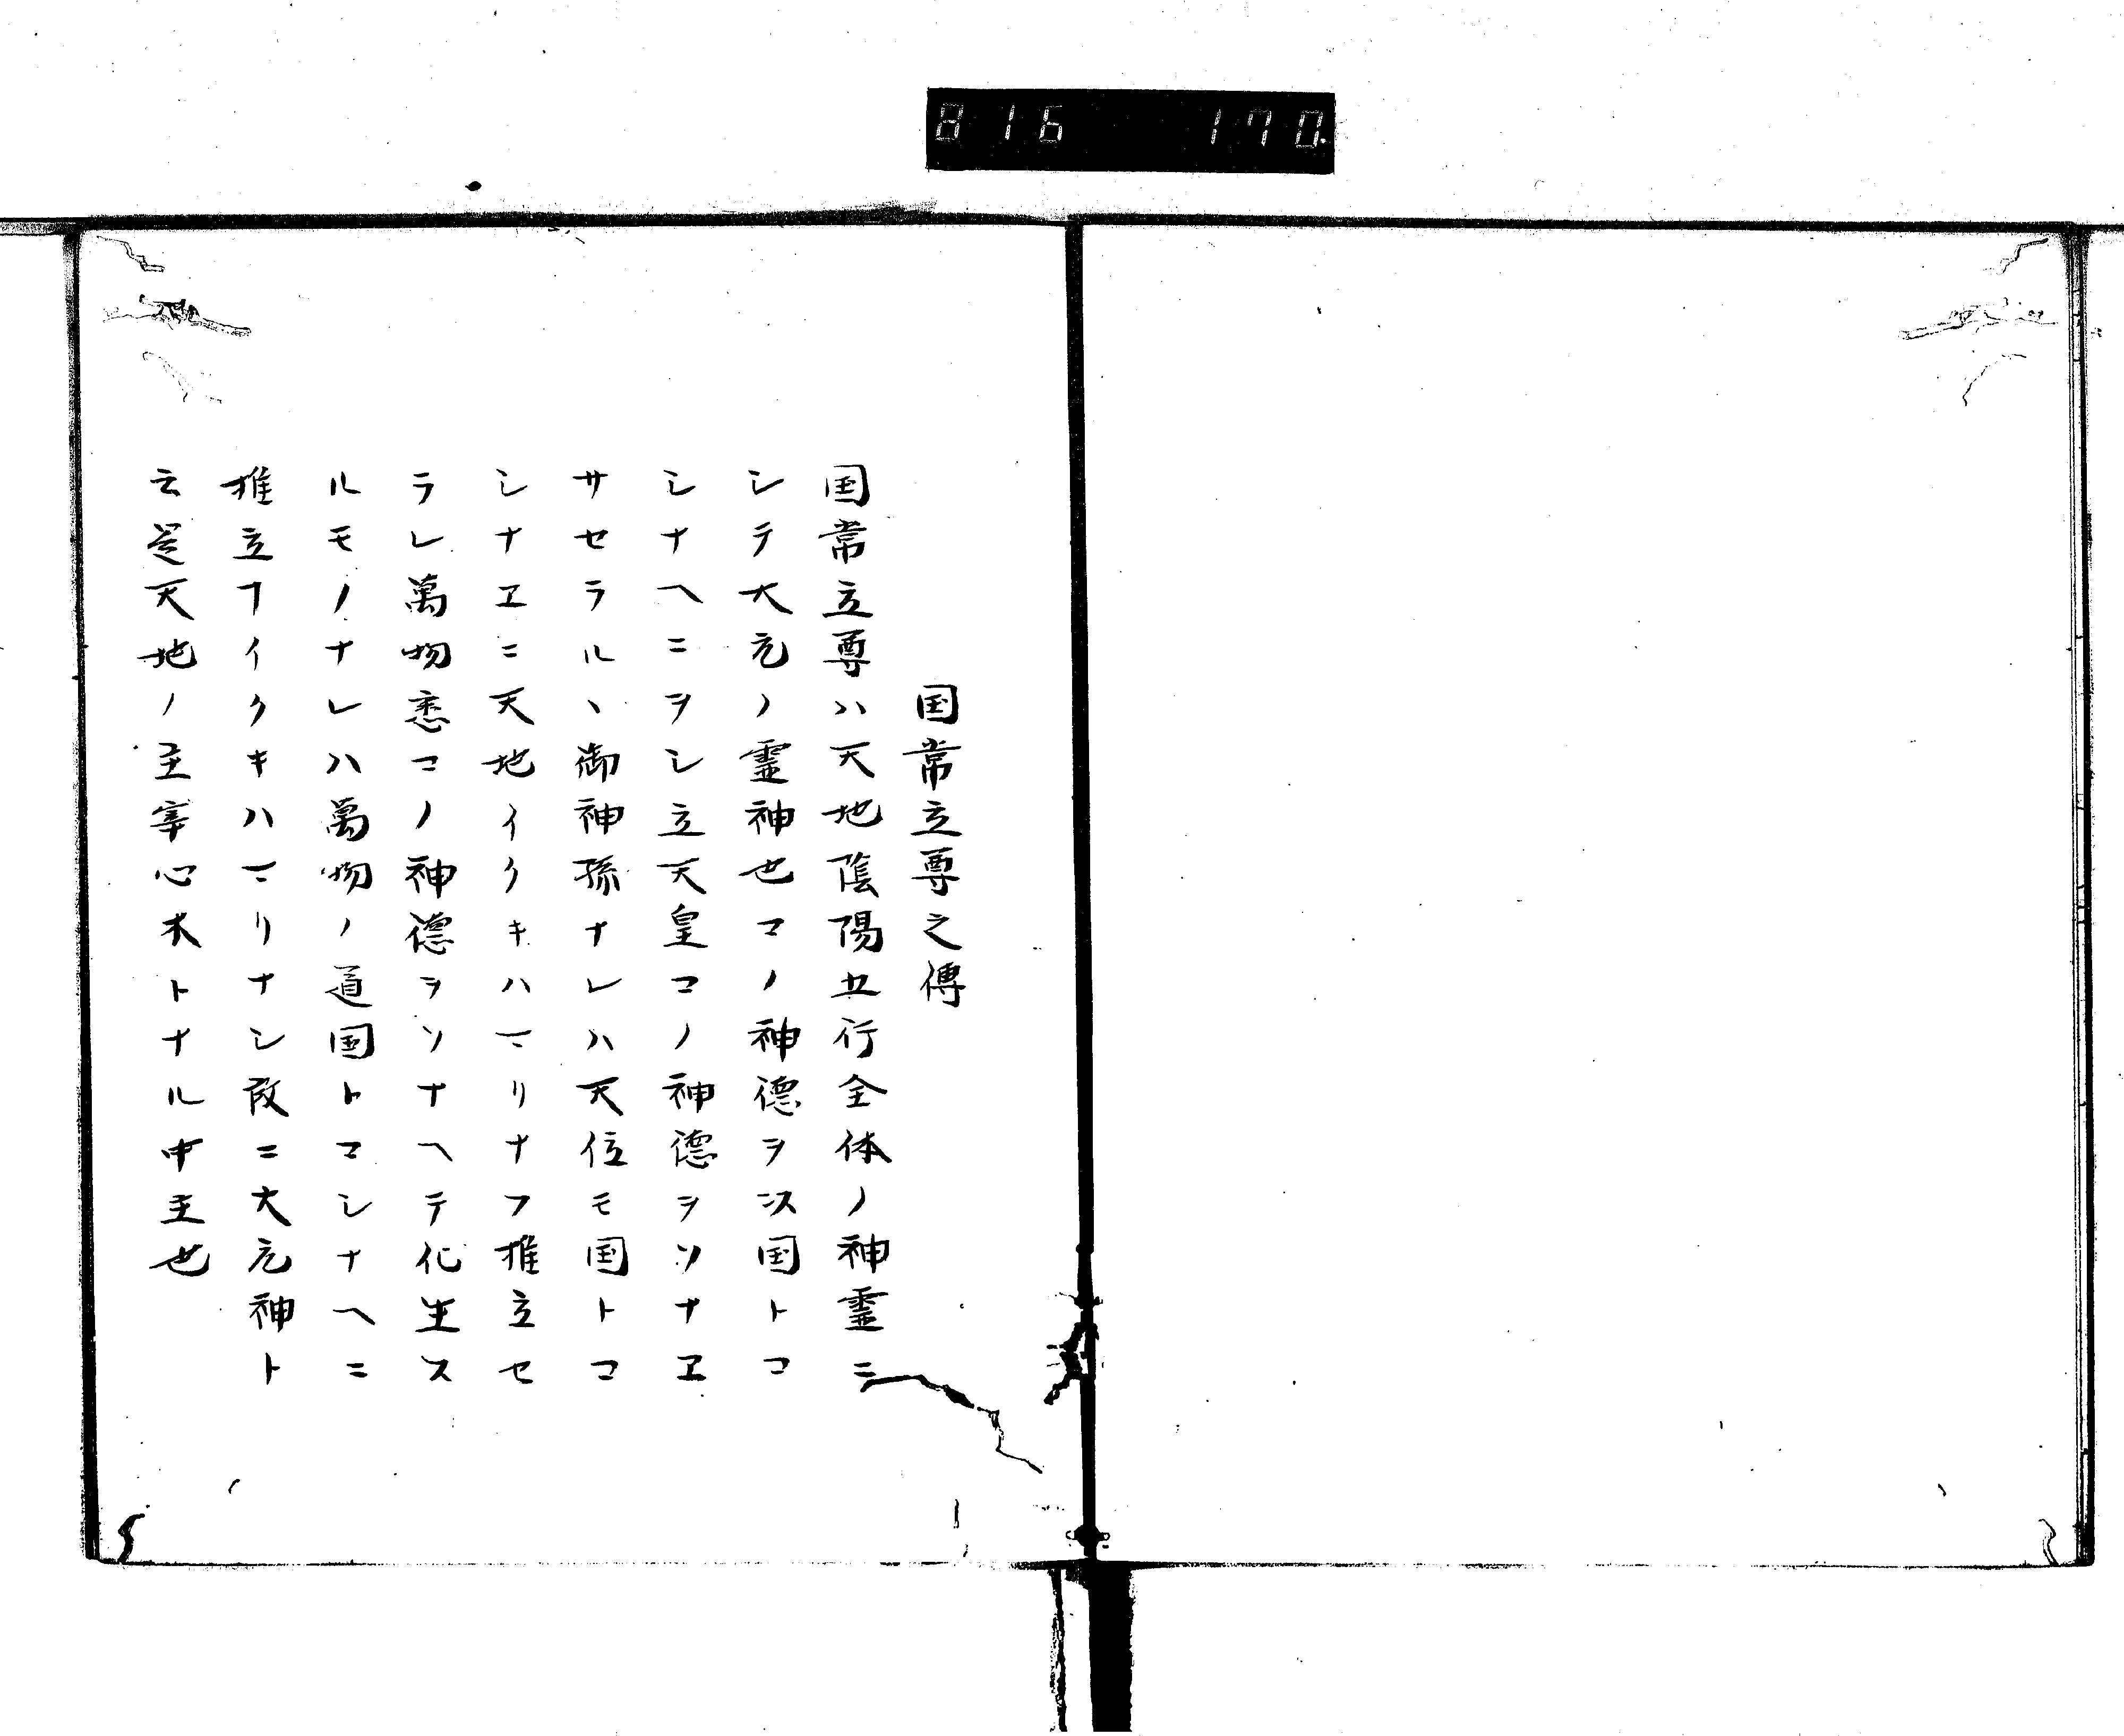 816 170.
国常立尊之傳
国常立尊ハ天地陰陽五行全体ノ神霊ニ
シテ大元ノ霊神也コノ神德ヲ以国トコ
シナヘニヲシ立天皇コノ神德ヲソナヱ
サセラルヽ御神孫ナレハ天位モ国トコ
シナヱニ天地イクキハマリナフ推立セ
ラレ萬物悉コノ神德ヲソナヘテ化生ス
ルモノナレハ萬物ノ道国トコシナヘニ
推立フイクキハマリナシ故ニ大元神ト
云是天地ノ主宰心木トナル中主也